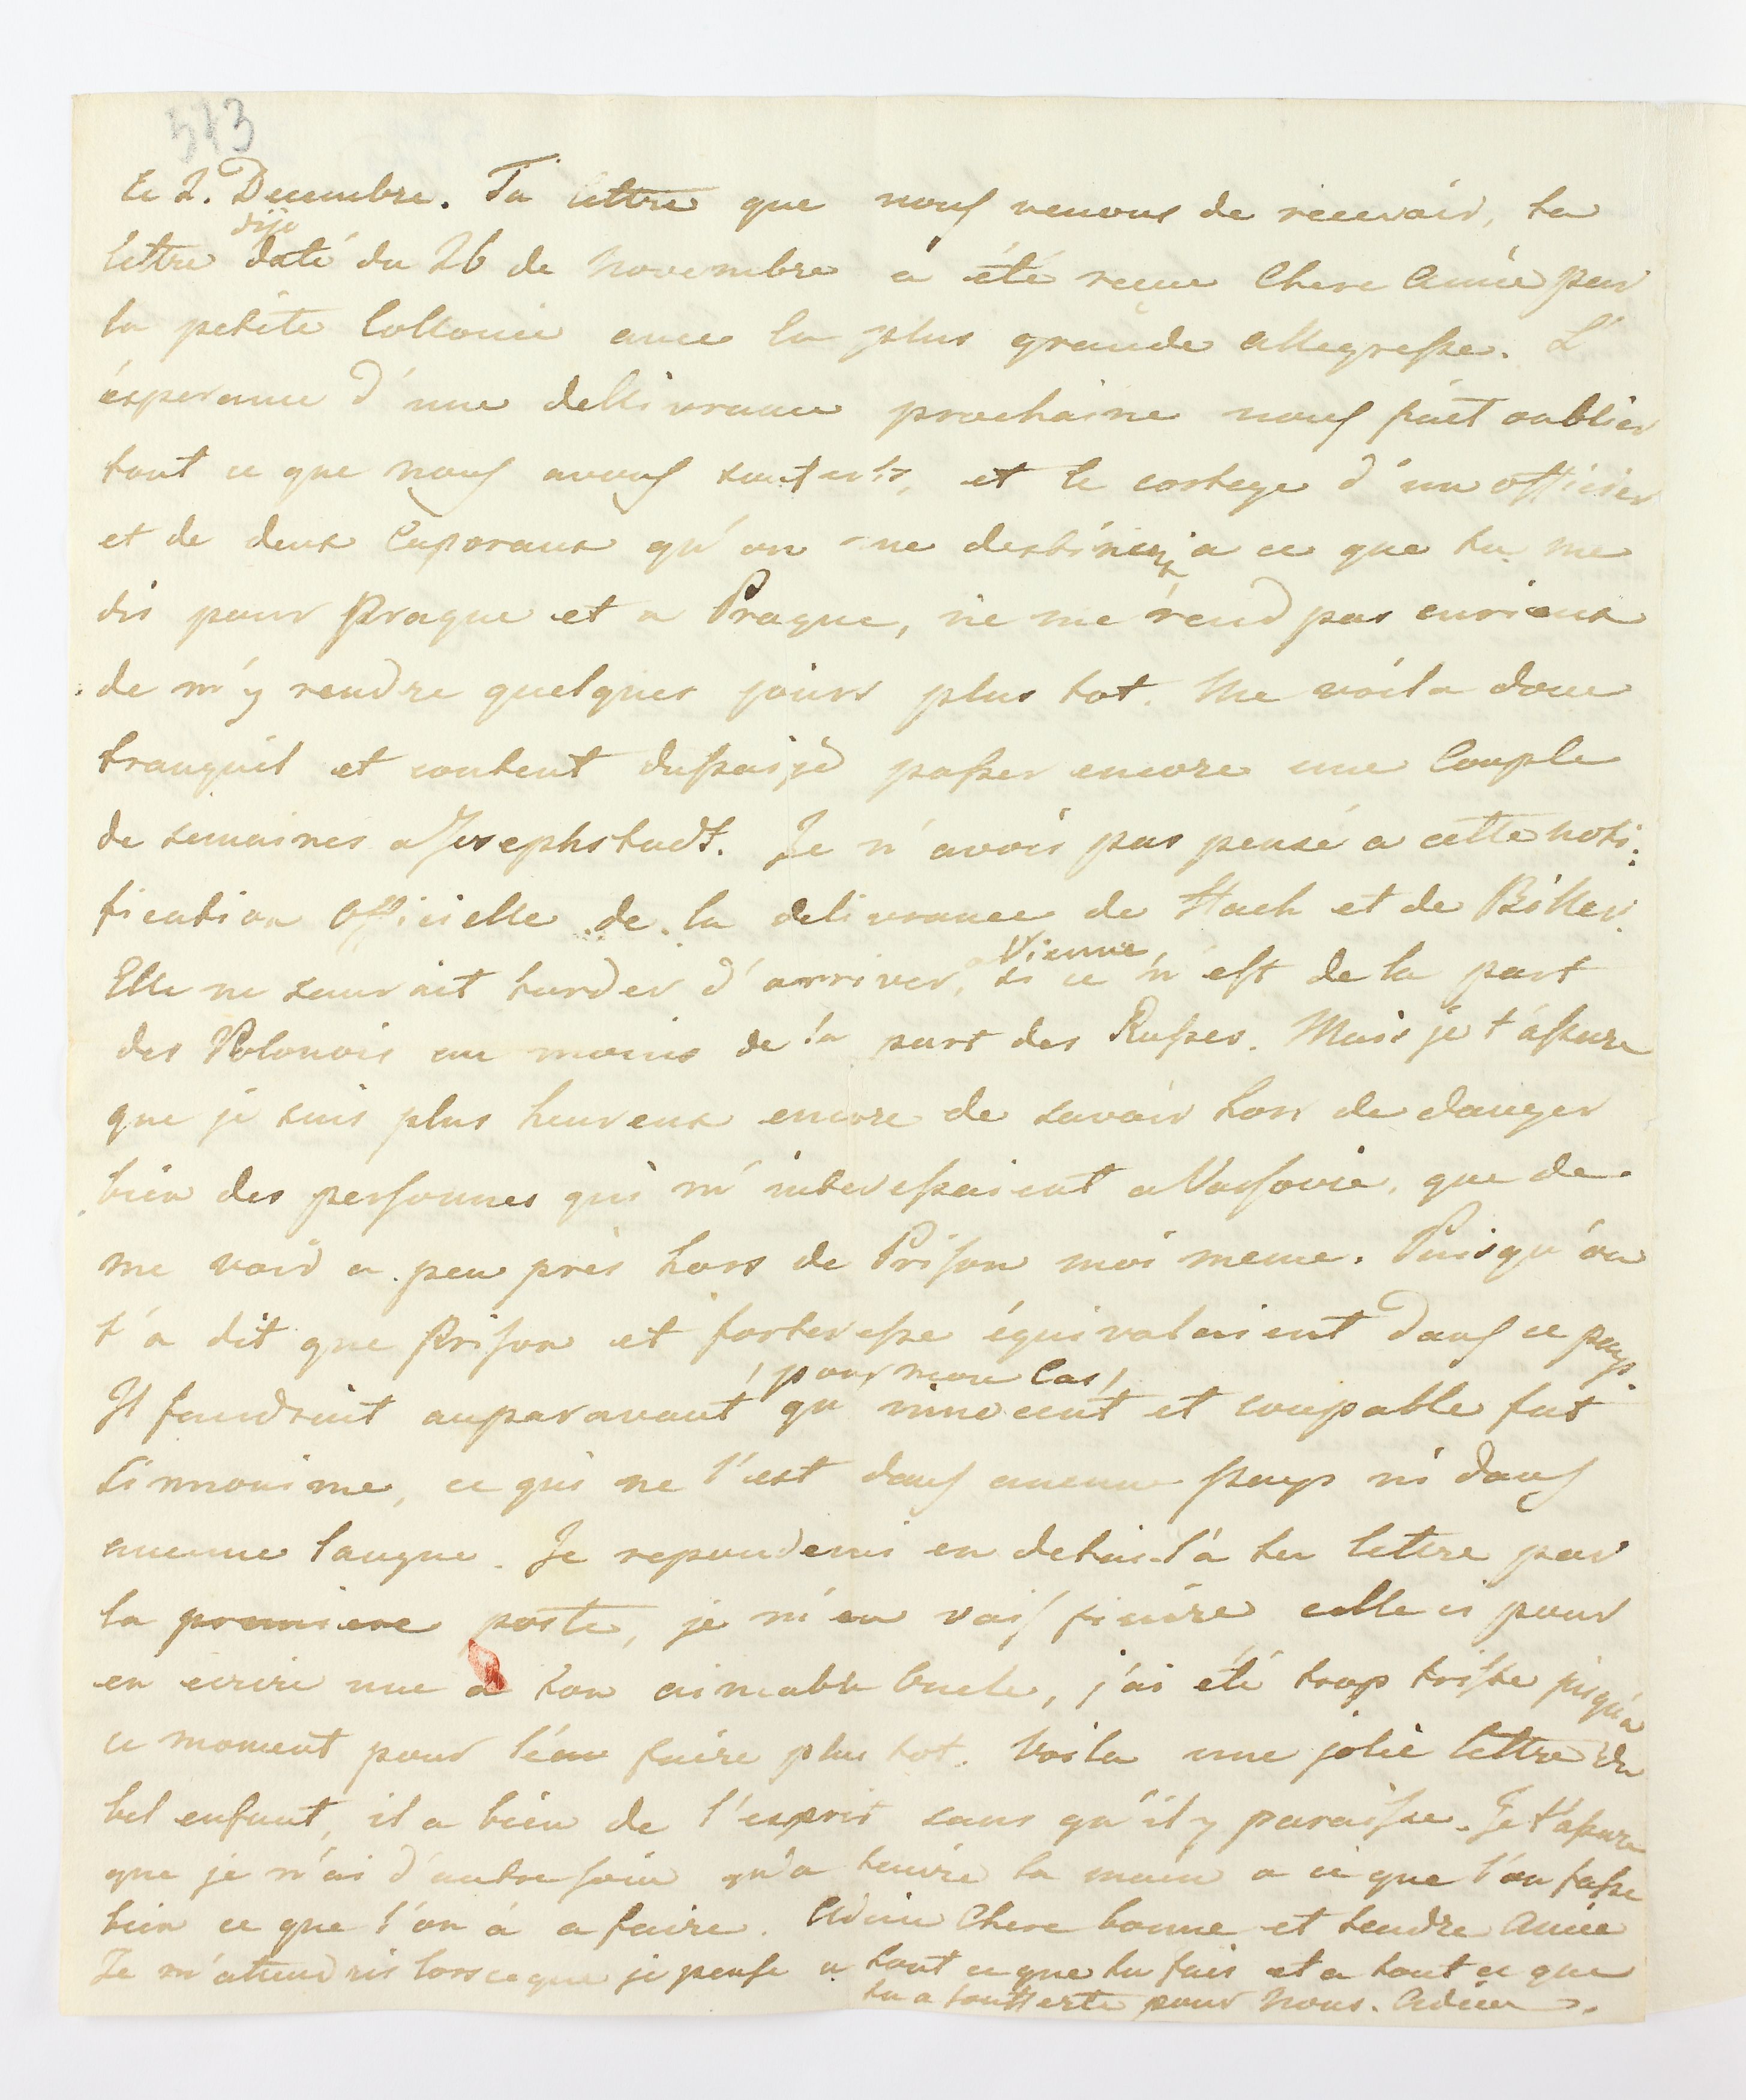 573
Le 2. Decembre. Ta lettre que nous venons de recevoir, ta
lettre daté du 26 de Novembre a été reçue Chere Amie par
la petite Collonie avec la plus grande allegresse. L'
ésperance d'une dellivrance prochaine nous fait oublier
tout ce que nous avons soufferts, et le cortege d'un officier
et de deux Caporaux qu'on me destine a ce que tu me
dis pour Prague et a Prague, ne me rend pas curieux
de m'y rendre quelques jours plus tot. Me voila donc
tranquil et content dussaije passer encore une Couple
de semaines a Josephstadt. Je n'avois pas pensé a cette noti:
fication Officielle de la delivrance de Stach et de Biller.
Vienne,
Elle ne saurait tarder d'arriver, si ce n'est de la part
des Polonois au moins de la part des Russes. Mais je t'assure
que je suis plus heureux encore de savoir hors de danger
bien des personnes qui m'interessaient a Varsovie, que de
me voir a peu près hors de Prison moi meme. Puisqu'on
t'a dit que Prison et forteresse équivalaient dans ce pays.
(pour mon Cas)
Il faudrait auparavant qu'innocent et coupable fut
sinnonime, ce qui ne l'est dans aucun pays ni dans
aucune langue. Je reponderai en detail a ta lettre par
la premiere poste, je m'en vais finire celle ci pour
en ecrire une a ton aimable Oncle, j'ai été trop triste jusqu'a
ce moment pour l'en faire plus tot. Voila une jolie lettre du
bel enfant, il a bien de l'esprit sans qu'il y paraisse. Je t'assure
que je n'ai d'autre soin qu'a tenire la main a ce que l'on fasse
bien ce que l'on a a faire. Adieu Chere bonne et tendre Amie
Je m'attendris lorsceque je pense a tout ce que tu fais et a tout ce que
tu a soufferte pour Nous. Adieu.